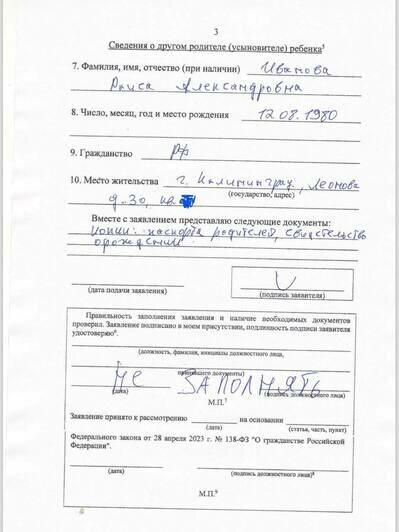 3
Сведения о другом родителе (усыновителе) ребенка⁵
7. Фамилия, имя, отчество (при наличии) Иванова
Раиса Александровна
8. Число, месяц, год и место рождения 12.08.1980
9. Гражданство РФ
10. Место жительства г. Калининград, Леонова
(государство, адрес)
д. 30, кв.
Вместе с заявлением представляю следующие документы:
копии: паспорта родителей, свидетельство
о рождении
(дата подачи заявления) (подпись заявителя)
Правильность заполнения заявления и наличие необходимых документов
проверил. Заявление подписано в моем присутствии, подлинность подписи заявителя
удостоверяю⁶.
(должность, фамилия, инициалы должностного лица,
принявшего документы)
НЕ ЗАПОЛНЯТЬ
(дата) (подпись должностного лица)
М.П.⁷
Заявление принято к рассмотрению на основании
(дата) (статья, часть, пункт)
Федерального закона от 28 апреля 2023 г. № 138-ФЗ "О гражданстве Российской
Федерации".
(дата) (подпись должностного лица)⁸
М.П.⁹